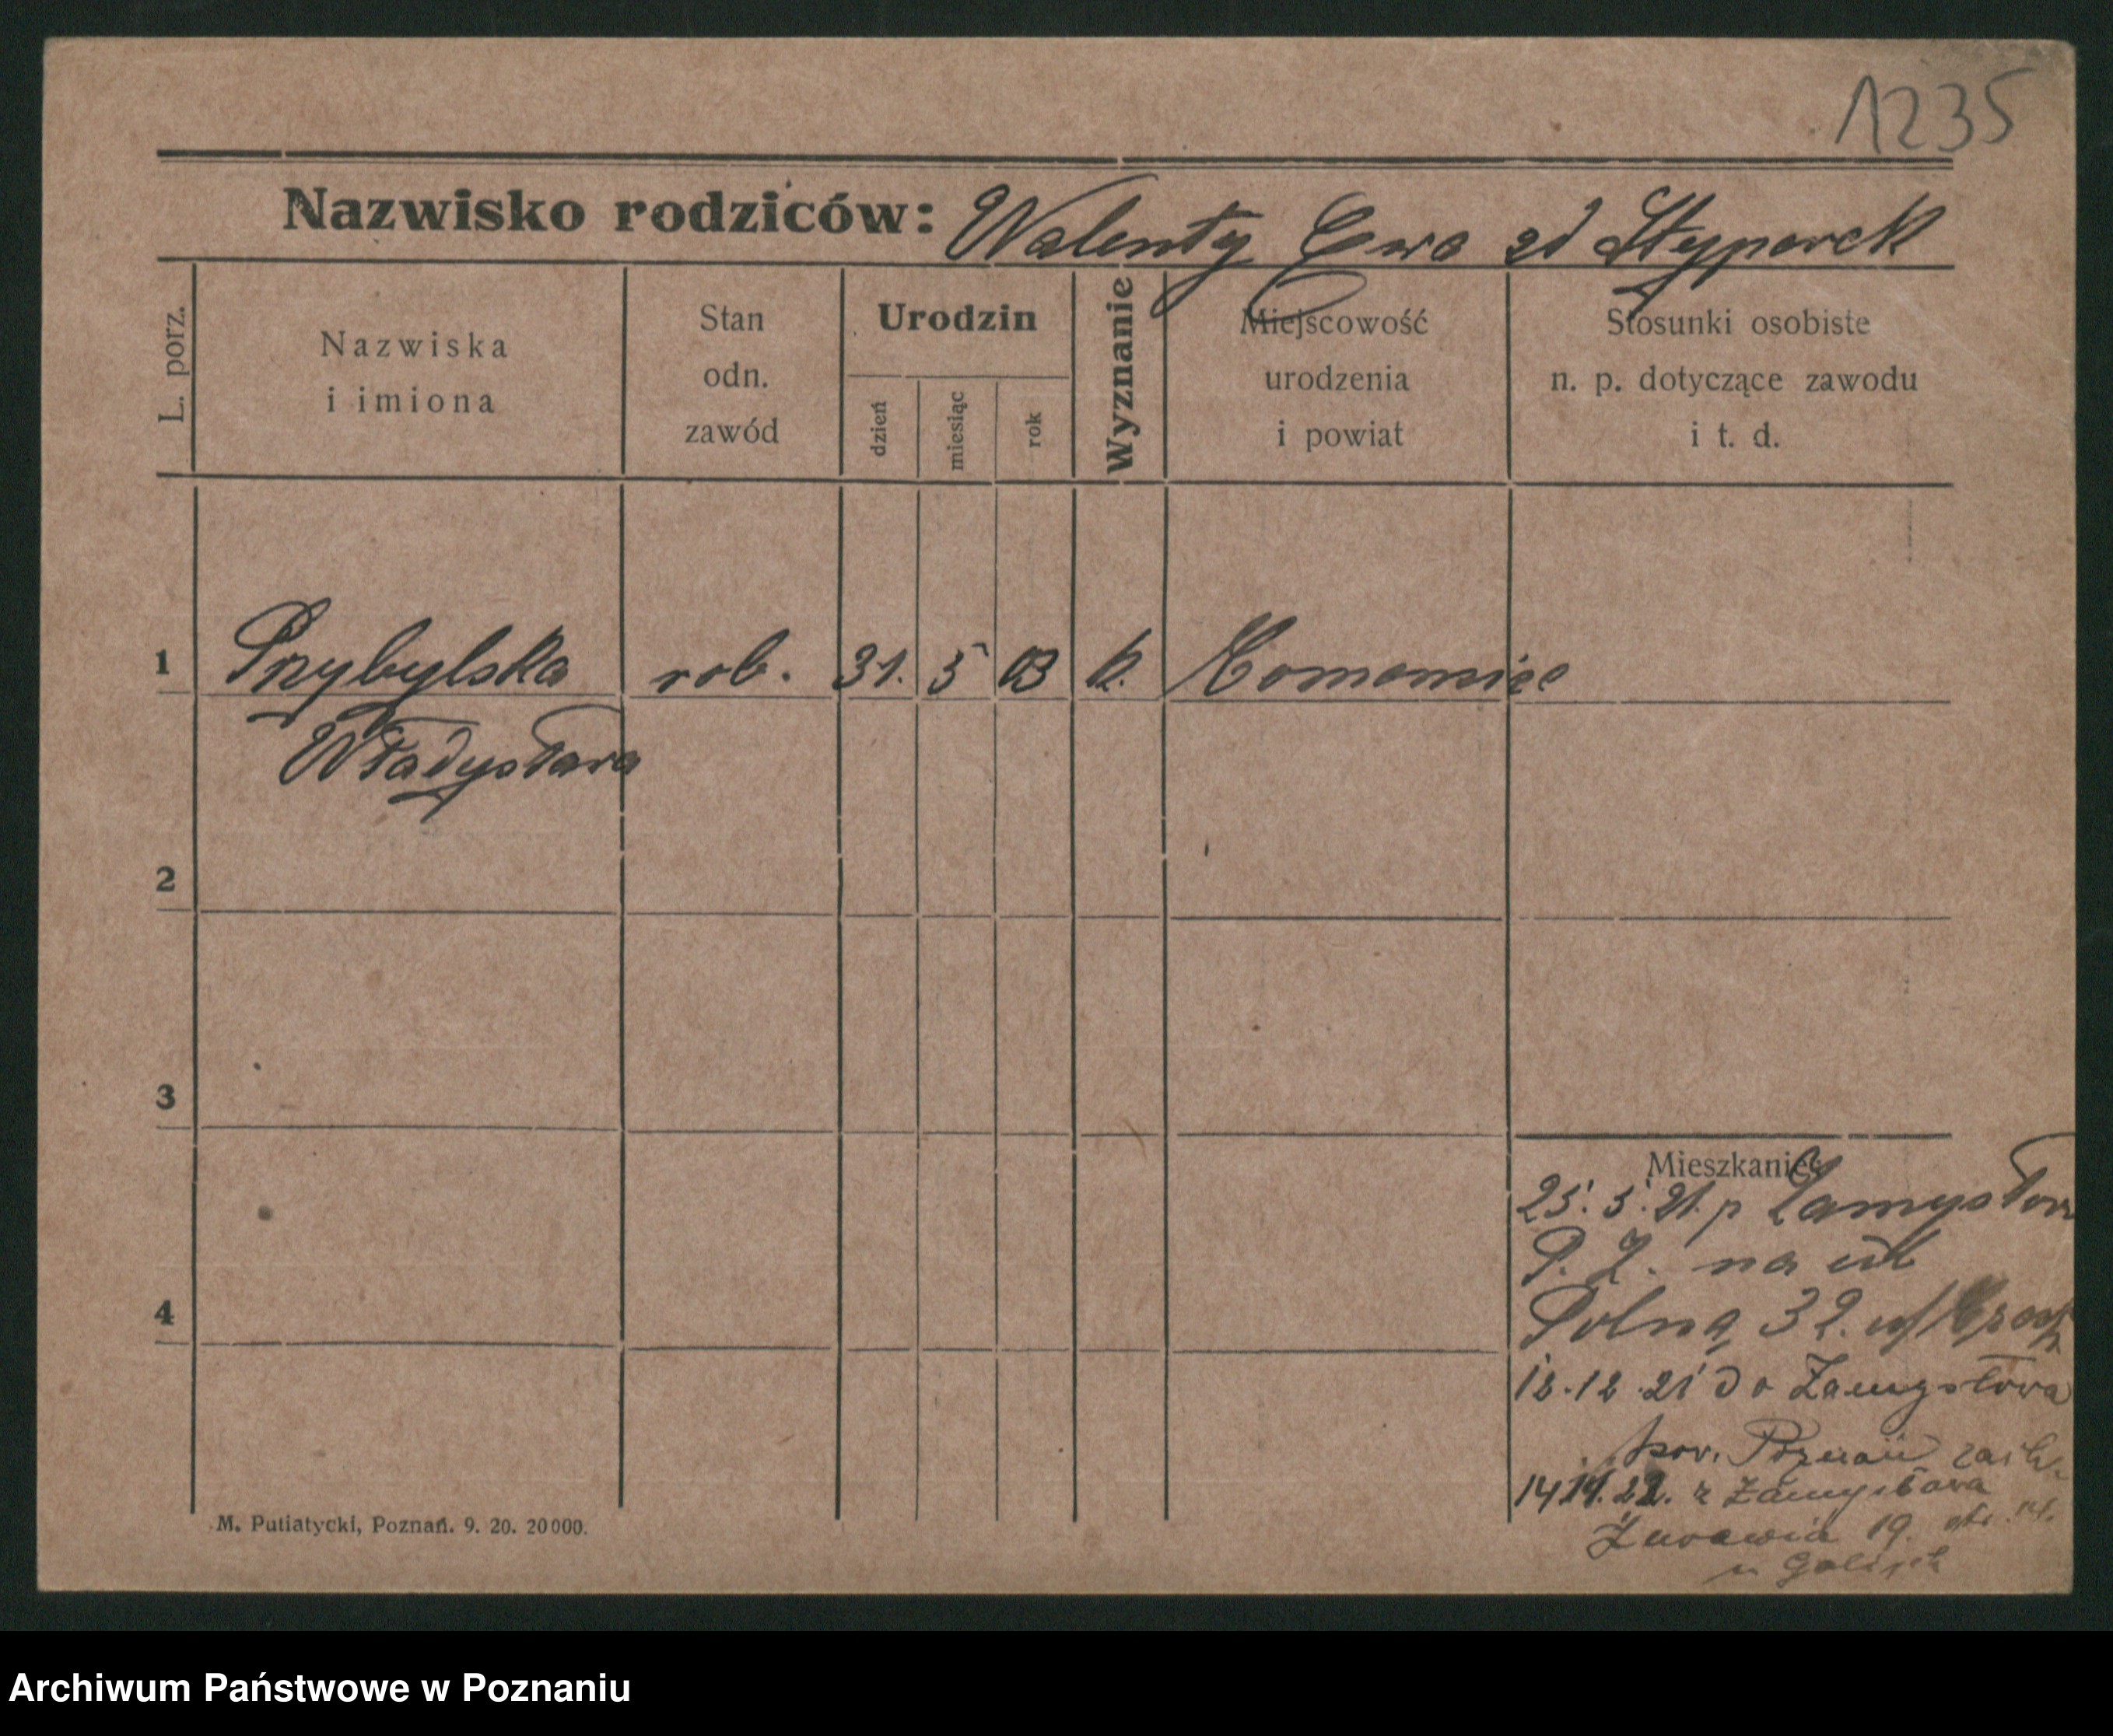 1235
Nazwisko rodziców: Walenty Ewa zd Styperek
L. porz.
Nazwiska
i imiona
Stan
odn.
zawód
Urodzin
dzień
miesiąc
rok
Wyznanie
Miejscowość
urodzenia
i powiat
Stosunki osobiste
n. p. dotyczące zawodu
i t. d.
1 Przybylska rob. 31. 5 03 k.
Władysława
2
3
4
Mieszkanie
25. 5. 21. p Zamysłow
P. Z. na ul
Polną 32.
12.12.21 do Zamysłowa
pow. Poznań zach.
14 11. 22. z Zamysłowa
Żurawia 19.
M. Putiatycki, Poznań. 9. 20. 20000.
Archiwum Państwowe w Poznaniu